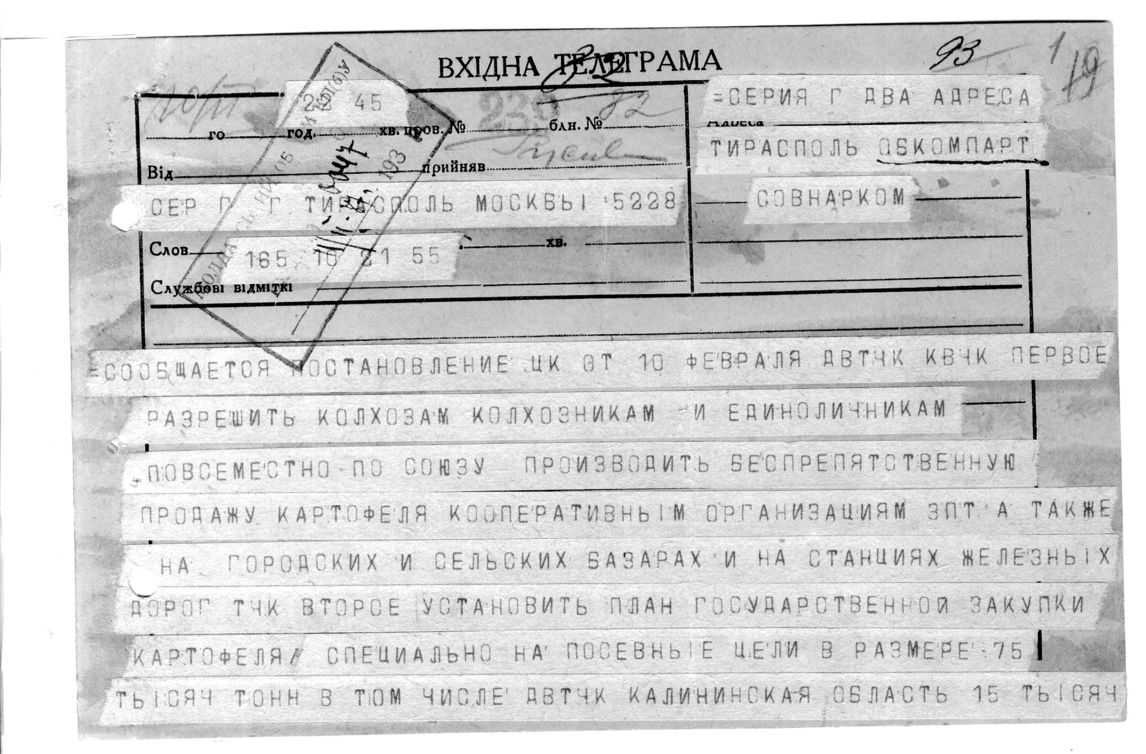 ВХІДНА ТЕЛЕГРАМА
93
1/19
45
го год. хв. пров. № 239 блн. № 82
=СЕРИЯ Г ДВА АДРЕСА
Адреса
Від прийняв
ТИРАСПОЛЬ ОБКОМПАРТ
СЕР Г Г ТИРАСПОЛЬ МОСКВЫ 5228
СОВНАРКОМ
Слов хв.
165 10 21 55
Службові відміткі
193
=СООБЩАЕТСЯ ПОСТАНОВЛЕНИЕ ЦК ОТ 10 ФЕВРАЛЯ ДВТЧК КВЧК ПЕРВОЕ
РАЗРЕШИТЬ КОЛХОЗАМ КОЛХОЗНИКАМ И ЕДИНОЛИЧНИКАМ
ПОВСЕМЕСТНО ПО СОЮЗУ ПРОИЗВОДИТЬ БЕСПРЕПЯТСТВЕННУЮ
ПРОДАЖУ КАРТОФЕЛЯ КООПЕРАТИВНЫМ ОРГАНИЗАЦИЯМ ЗПТ А ТАКЖЕ
НА ГОРОДСКИХ И СЕЛЬСКИХ БАЗАРАХ И НА СТАНЦИЯХ ЖЕЛЕЗНЫХ
ДОРОГ ТЧК ВТОРОЕ УСТАНОВИТЬ ПЛАН ГОСУДАРСТВЕННОЙ ЗАКУПКИ
КАРТОФЕЛЯ СПЕЦИАЛЬНО НА ПОСЕВНЫЕ ЦЕЛИ В РАЗМЕРЕ 75
ТЫСЯЧ ТОНН В ТОМ ЧИСЛЕ ДВТЧК КАЛИНИНСКАЯ ОБЛАСТЬ 15 ТЫСЯЧ